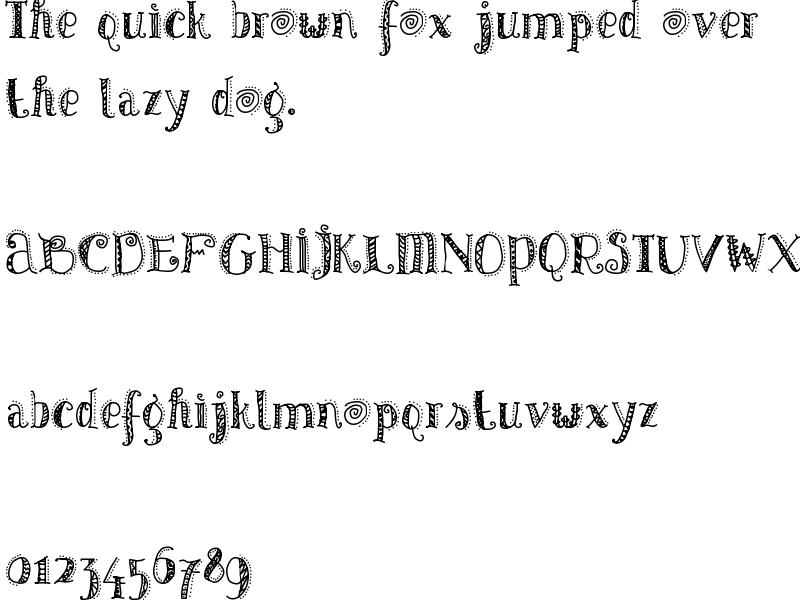 The quick brown fox jumped over
the lazy dog.
aBCDEFGHiJKLmNOPQRSTUVWX
abcdefghijklmnopqrstuvwxyz
0123456789